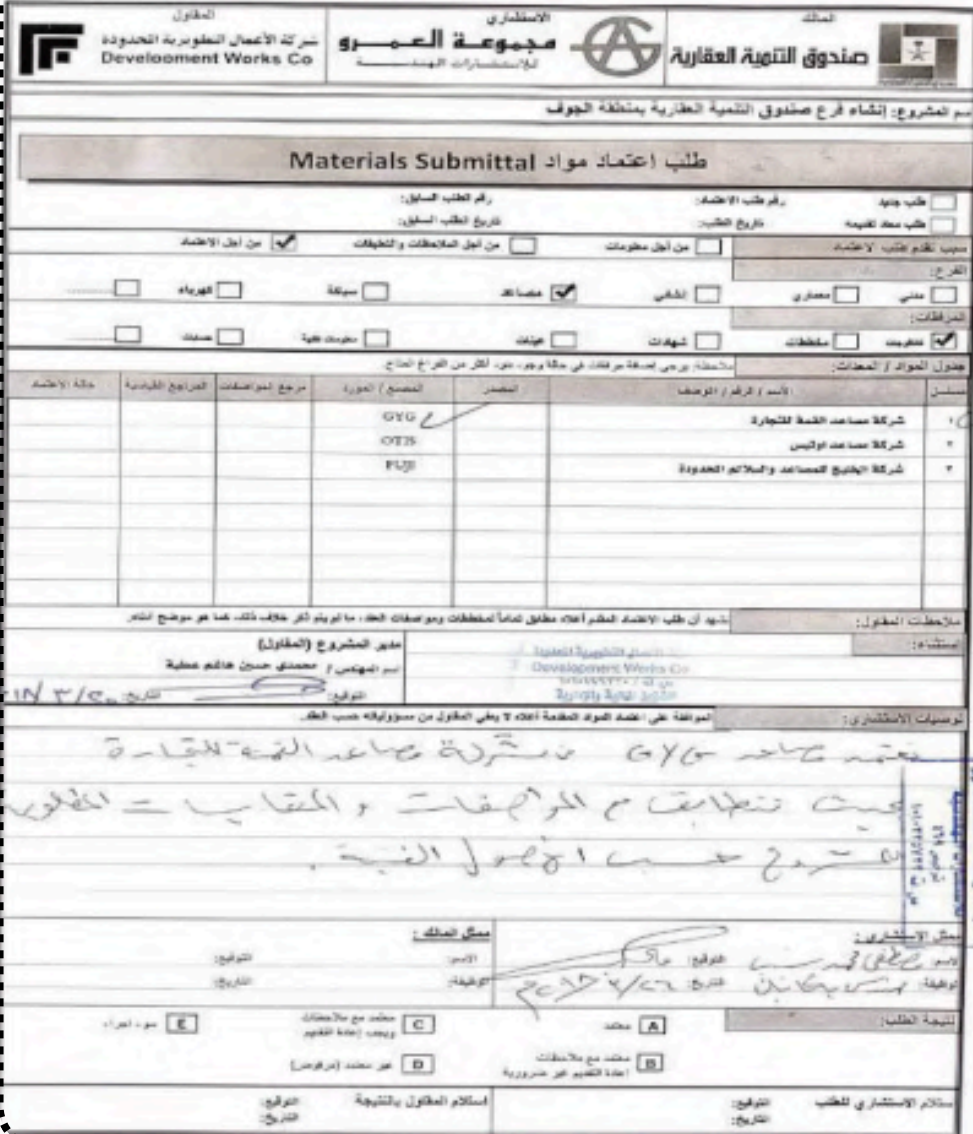 المالك
صندوق التنمية العقارية
الاستشاري
مجموعة العمرو
للاستشارات الهندسية
المقاول
شركة الأعمال التطويرية المحدودة
Development Works Co
اسم المشروع: إنشاء فرع صندوق التنمية العقارية بمنطقة الجوف
طلب اعتماد مواد Materials Submittal
طلب جديد رقم طلب الاعتماد: رقم الطلب السابق:
طلب معاد تقديمه تاريخ الطلب: تاريخ الطلب السابق:
سبب تقديم طلب الاعتماد من أجل معلومات من أجل الملاحظات والتعليقات من أجل الاعتماد
الفرع:
مدني معماري إنشائي مصاعد سباكة كهرباء ..........
المرفقات:
مخططات شهادات عينات معلومات فنية حسابات ..........
جدول المواد / المعدات: ملاحظة: يرجى إضافة مرفقات في حالة وجود مواد أكثر من الفراغ المتاح
مسلسل الاسم / الرقم / الوصف المصدر المصنع / المورد مرجع المواصفات المراجع القياسية حالة الاعتماد
١ شركة مصاعد القمة للتجارة GYG
٢ شركة مصاعد اوتيس OTIS
٣ شركة الخليج للمصاعد والسلالم المحدودة FUJI
ملاحظات المقاول: نشهد أن طلب الاعتماد المقدم أعلاه مطابق تماماً لمخططات ومواصفات العقد، ما لم يتم ذكر خلاف ذلك، كما هو موضح أدناه.
استثناء:
Development Works Co
مدير المشروع (المقاول)
اسم المهندس / محمدي حسين هاشم عطية
التوقيع:
توصيات الاستشاري: الموافقة على اعتماد المواد المقدمة أعلاه لا يعفي المقاول من مسؤولياته حسب العقد.
تعتمد مصاعد GYG من شركة مصاعد القمة للتجارة
بحيث تتطابق مع المواصفات و المقايسات المطلوبة
للمشروع حسب الأصول الفنية.
ممثل الاستشاري: ممثل المالك:
الاسم: مصطفى محمد التوقيع: الاسم: التوقيع:
الوظيفة: مهندس ميكانيكي التاريخ: الوظيفة: التاريخ:
نتيجة الطلب: A معتمد C معتمد مع ملاحظات ويجب إعادة التقديم E
B معتمد مع ملاحظات إعادة التقديم غير ضرورية D غير معتمد (مرفوض)
استلام الاستشاري للطلب التوقيع: استلام المقاول بالنتيجة التوقيع:
التاريخ: التاريخ: